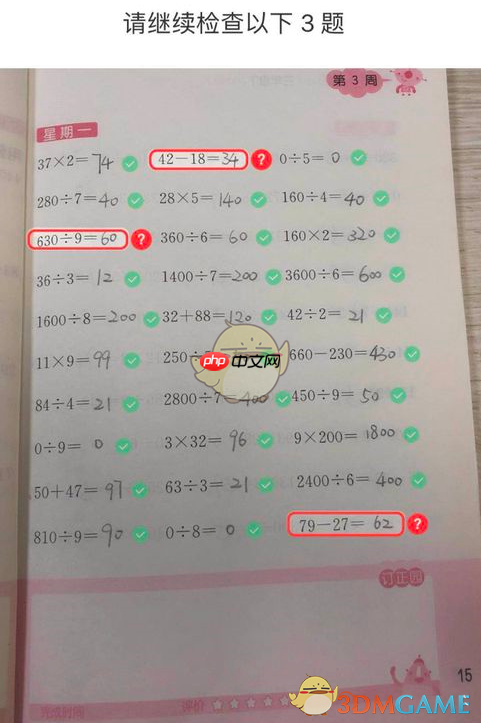 请继续检查以下 3 题
第 3 周
星期一
37×2=74 42-18=34 0÷5=0
280÷7=40 28×5=140 160÷4=40
630÷9=60 360÷6=60 160×2=320
36÷3=12 1400÷7=200 3600÷6=600
1600÷8=200 32+88=120 42÷2=21
11×9=99 250÷ 660-230=430
php 中文网
84÷4=21 2800÷7=400 450÷9=50
0÷9=0 3×32=96 9×200=1800
50+47=97 63÷3=21 2400÷6=400
810÷9=90 0÷8=0 79-27=62
订正园
15
完成时间 评价
3DMGAME